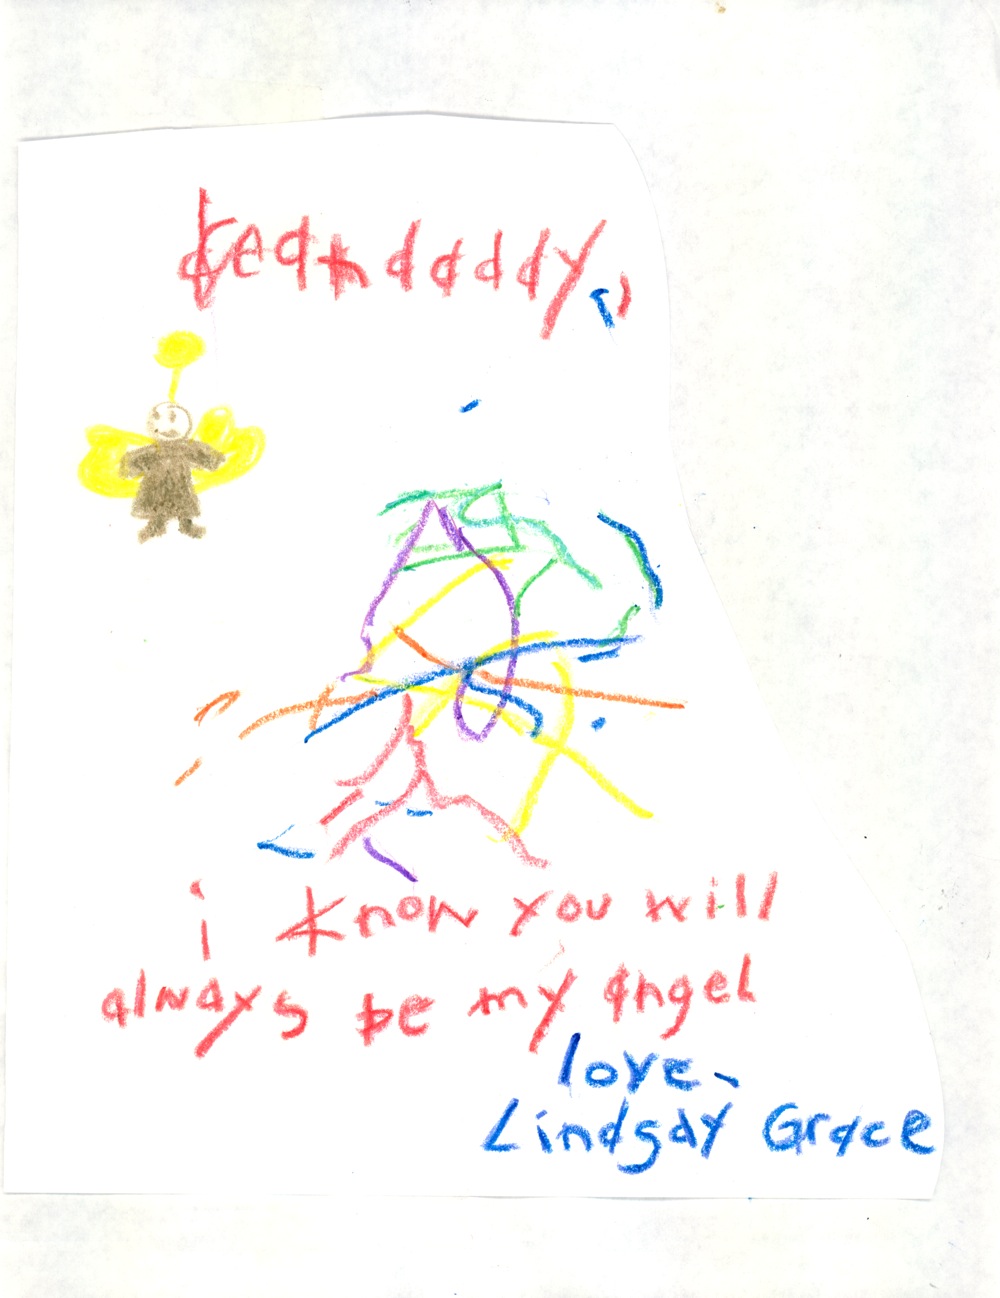 dear daddy,
i know you will
always be my angel
love,
Lindsay Grace